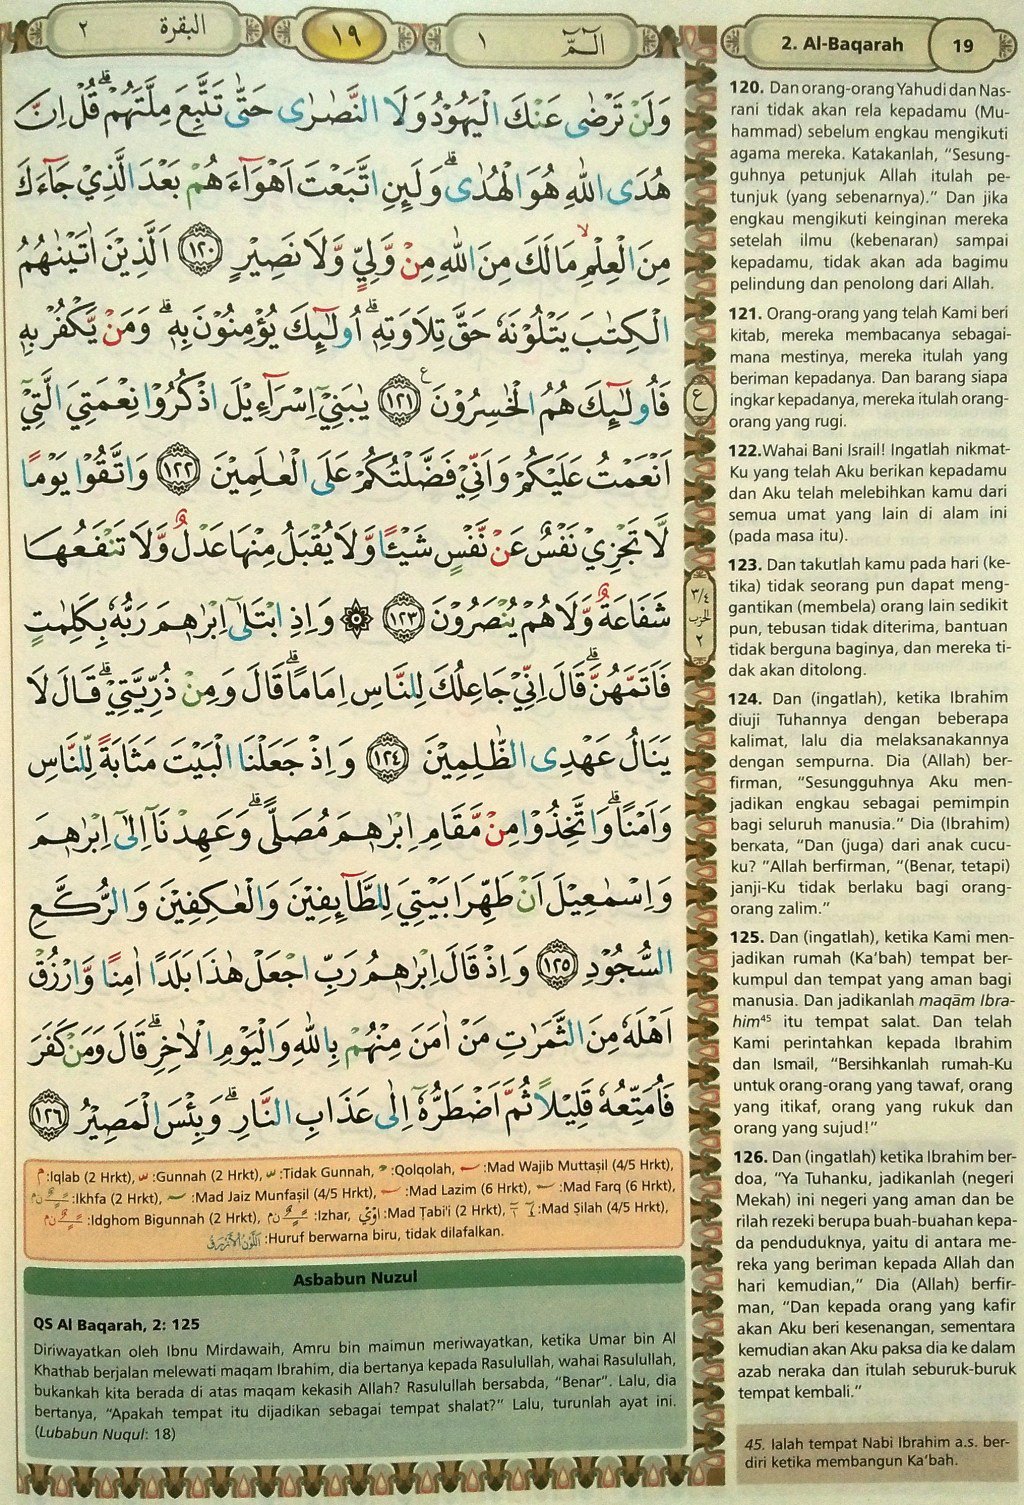 البقرة ٢
١٩
الۤمّۤ ١
2. Al-Baqarah
19
وَلَنْ تَرْضٰى عَنْكَ الْيَهُوْدُ وَلَا النَّصٰرٰى حَتّٰى تَتَّبِعَ مِلَّتَهُمْ ۗ قُلْ اِنَّ
هُدَى اللّٰهِ هُوَ الْهُدٰى ۗ وَلَىِٕنِ اتَّبَعْتَ اَهْوَاۤءَهُمْ بَعْدَ الَّذِيْ جَاۤءَكَ
مِنَ الْعِلْمِ ۙ مَا لَكَ مِنَ اللّٰهِ مِنْ وَّلِيٍّ وَّلَا نَصِيْرٍ ﴿١٢٠﴾ اَلَّذِيْنَ اٰتَيْنٰهُمُ
الْكِتٰبَ يَتْلُوْنَهٗ حَقَّ تِلَاوَتِهٖ ۗ اُولٰۤىِٕكَ يُؤْمِنُوْنَ بِهٖ ۗ وَمَنْ يَّكْفُرْ بِهٖ
فَاُولٰۤىِٕكَ هُمُ الْخٰسِرُوْنَ ﴿١٢١﴾ ع يٰبَنِيْٓ اِسْرَاۤءِيْلَ اذْكُرُوْا نِعْمَتِيَ الَّتِيْٓ
اَنْعَمْتُ عَلَيْكُمْ وَاَنِّيْ فَضَّلْتُكُمْ عَلَى الْعٰلَمِيْنَ ﴿١٢٢﴾ وَاتَّقُوْا يَوْمًا
لَّا تَجْزِيْ نَفْسٌ عَنْ نَّفْسٍ شَيْـًٔا وَّلَا يُقْبَلُ مِنْهَا عَدْلٌ وَّلَا تَنْفَعُهَا
شَفَاعَةٌ وَّلَا هُمْ يُنْصَرُوْنَ ﴿١٢٣﴾ ۞ وَاِذِ ابْتَلٰٓى اِبْرٰهٖمَ رَبُّهٗ بِكَلِمٰتٍ
فَاَتَمَّهُنَّ ۗ قَالَ اِنِّيْ جَاعِلُكَ لِلنَّاسِ اِمَامًا ۗ قَالَ وَمِنْ ذُرِّيَّتِيْ ۗ قَالَ لَا
يَنَالُ عَهْدِى الظّٰلِمِيْنَ ﴿١٢٤﴾ وَاِذْ جَعَلْنَا الْبَيْتَ مَثَابَةً لِّلنَّاسِ
وَاَمْنًا ۗ وَاتَّخِذُوْا مِنْ مَّقَامِ اِبْرٰهٖمَ مُصَلًّى ۗ وَعَهِدْنَآ اِلٰٓى اِبْرٰهٖمَ
وَاِسْمٰعِيْلَ اَنْ طَهِّرَا بَيْتِيَ لِلطَّاۤىِٕفِيْنَ وَالْعٰكِفِيْنَ وَالرُّكَّعِ
السُّجُوْدِ ﴿١٢٥﴾ وَاِذْ قَالَ اِبْرٰهٖمُ رَبِّ اجْعَلْ هٰذَا بَلَدًا اٰمِنًا وَّارْزُقْ
اَهْلَهٗ مِنَ الثَّمَرٰتِ مَنْ اٰمَنَ مِنْهُمْ بِاللّٰهِ وَالْيَوْمِ الْاٰخِرِ ۗ قَالَ وَمَنْ كَفَرَ
فَاُمَتِّعُهٗ قَلِيْلًا ثُمَّ اَضْطَرُّهٗٓ اِلٰى عَذَابِ النَّارِ ۗ وَبِئْسَ الْمَصِيْرُ ﴿١٢٦﴾
ع
٣/٤
الحزب
٢
:Iqlab (2 Hrkt), :Gunnah (2 Hrkt), :Tidak Gunnah, :Qolqolah, :Mad Wajib Muttaṣil (4/5 Hrkt),
:Ikhfa (2 Hrkt), :Mad Jaiz Munfaṣil (4/5 Hrkt), :Mad Lazim (6 Hrkt), :Mad Farq (6 Hrkt),
:Idghom Bigunnah (2 Hrkt), :Izhar, :Mad Ṭabi'i (2 Hrkt), :Mad Ṣilah (4/5 Hrkt),
:Huruf berwarna biru, tidak dilafalkan.
Asbabun Nuzul
QS Al Baqarah, 2: 125
Diriwayatkan oleh Ibnu Mirdawaih, Amru bin maimun meriwayatkan, ketika Umar bin Al
Khathab berjalan melewati maqam Ibrahim, dia bertanya kepada Rasulullah, wahai Rasulullah,
bukankah kita berada di atas maqam kekasih Allah? Rasulullah bersabda, “Benar”. Lalu, dia
bertanya, “Apakah tempat itu dijadikan sebagai tempat shalat?” Lalu, turunlah ayat ini.
(Lubabun Nuqul: 18)
120. Dan orang-orang Yahudi dan Nas-
rani tidak akan rela kepadamu (Mu-
hammad) sebelum engkau mengikuti
agama mereka. Katakanlah, “Sesung-
guhnya petunjuk Allah itulah pe-
tunjuk (yang sebenarnya).” Dan jika
engkau mengikuti keinginan mereka
setelah ilmu (kebenaran) sampai
kepadamu, tidak akan ada bagimu
pelindung dan penolong dari Allah.
121. Orang-orang yang telah Kami beri
kitab, mereka membacanya sebagai-
mana mestinya, mereka itulah yang
beriman kepadanya. Dan barang siapa
ingkar kepadanya, mereka itulah orang-
orang yang rugi.
122.Wahai Bani Israil! Ingatlah nikmat-
Ku yang telah Aku berikan kepadamu
dan Aku telah melebihkan kamu dari
semua umat yang lain di alam ini
(pada masa itu).
123. Dan takutlah kamu pada hari (ke-
tika) tidak seorang pun dapat meng-
gantikan (membela) orang lain sedikit
pun, tebusan tidak diterima, bantuan
tidak berguna baginya, dan mereka ti-
dak akan ditolong.
124. Dan (ingatlah), ketika Ibrahim
diuji Tuhannya dengan beberapa
kalimat, lalu dia melaksanakannya
dengan sempurna. Dia (Allah) ber-
firman, “Sesungguhnya Aku men-
jadikan engkau sebagai pemimpin
bagi seluruh manusia.” Dia (Ibrahim)
berkata, “Dan (juga) dari anak cucu-
ku? ”Allah berfirman, “(Benar, tetapi)
janji-Ku tidak berlaku bagi orang-
orang zalim.”
125. Dan (ingatlah), ketika Kami men-
jadikan rumah (Ka’bah) tempat ber-
kumpul dan tempat yang aman bagi
manusia. Dan jadikanlah maqām Ibra-
him⁴⁵ itu tempat salat. Dan telah
Kami perintahkan kepada Ibrahim
dan Ismail, “Bersihkanlah rumah-Ku
untuk orang-orang yang tawaf, orang
yang itikaf, orang yang rukuk dan
orang yang sujud!”
126. Dan (ingatlah) ketika Ibrahim ber-
doa, “Ya Tuhanku, jadikanlah (negeri
Mekah) ini negeri yang aman dan be
rilah rezeki berupa buah-buahan kepa-
da penduduknya, yaitu di antara me-
reka yang beriman kepada Allah dan
hari kemudian,” Dia (Allah) berfir-
man, “Dan kepada orang yang kafir
akan Aku beri kesenangan, sementara
kemudian akan Aku paksa dia ke dalam
azab neraka dan itulah seburuk-buruk
tempat kembali.”
45. Ialah tempat Nabi Ibrahim a.s. ber-
diri ketika membangun Ka’bah.